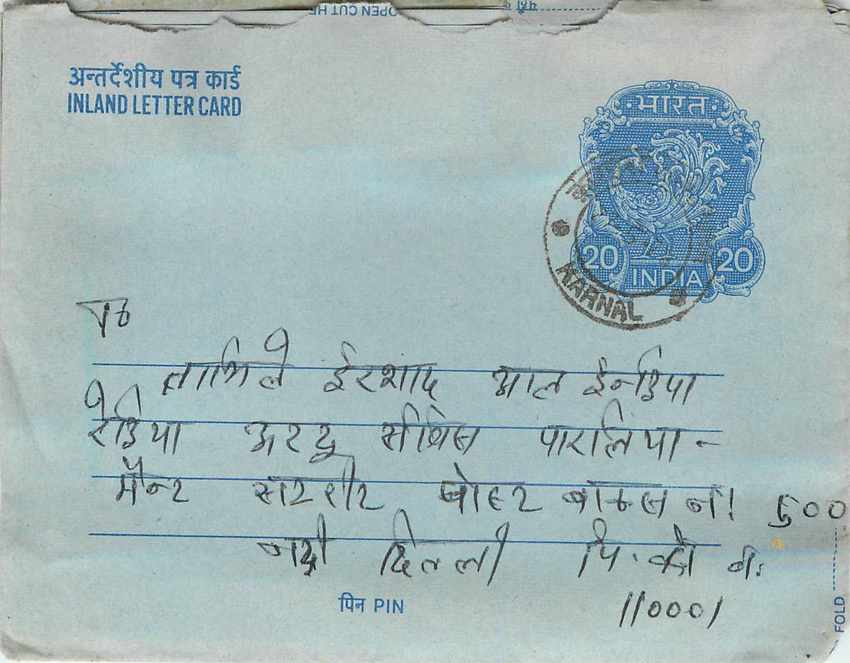 OPEN CUT HE
अन्तर्देशीय पत्र कार्ड
INLAND LETTER CARD
भारत
20 20
INDIA
KARNAL
To
तामिले ईरशाद आल ईन्डिया
रेडिया ऊरदू सीर्विस पारलिया-
मैन्ट सटरीट पोस्ट बाक्स नं! 500
नई दिल्ली पि. को नं:
110001
पिन PIN
FOLD